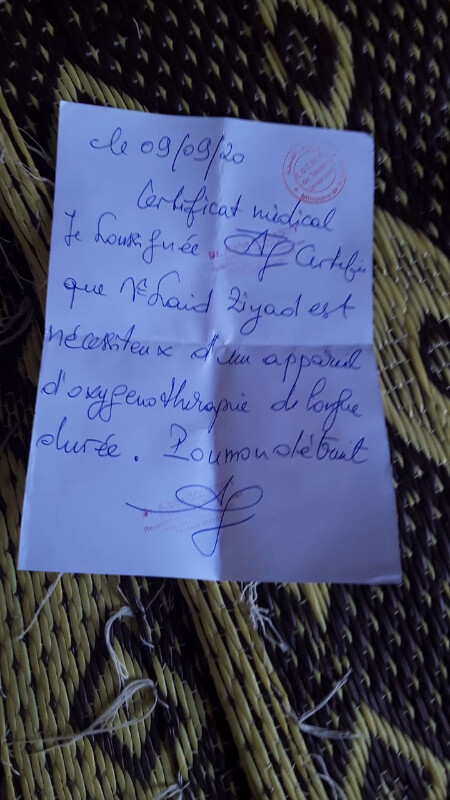 le 09/09/20
Certificat médical
Je soussignée Certifie
que Mr Laid Ziyad est
nécessiteux d'un appareil
d'oxygenothérapie de longue
durée. Poumon détruit